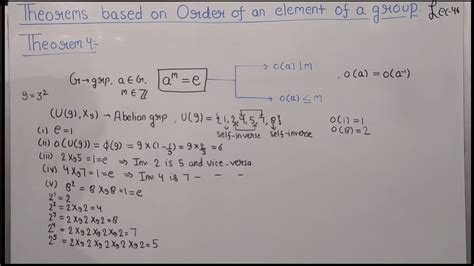 Theorems based on Order of an element of a group. Lec-46
Theorem 4:-
G → grp, a ∈ G, m ∈ ℤ
a^m = e
o(a) | m
o(a) ≤ m
, o(a) = o(a⁻¹)
9 = 3²
(U(9), ×₉) → Abelian grp , U(9) = {1, 2, 4, 5, 7, 8}
self-inverse self-inverse
o(1) = 1
o(8) = 2
(i) e = 1
(ii) o(U(9)) = ϕ(9) = 9 × (1 - 1/3) = 9 × 2/3 = 6
(iii) 2 ×₉ 5 = 1 = e ⇒ Inv 2 is 5 and vice-versa
(iv) 4 ×₉ 7 = 1 = e ⇒ Inv 4 is 7 - - -
(v) 8² = 8 ×₉ 8 = 1 = e
2¹ = 2
2² = 2 ×₉ 2 = 4
2³ = 2 ×₉ 2 ×₉ 2 = 8
2⁴ = 2 ×₉ 2 ×₉ 2 ×₉ 2 = 7
2⁵ = 2 ×₉ 2 ×₉ 2 ×₉ 2 ×₉ 2 = 5